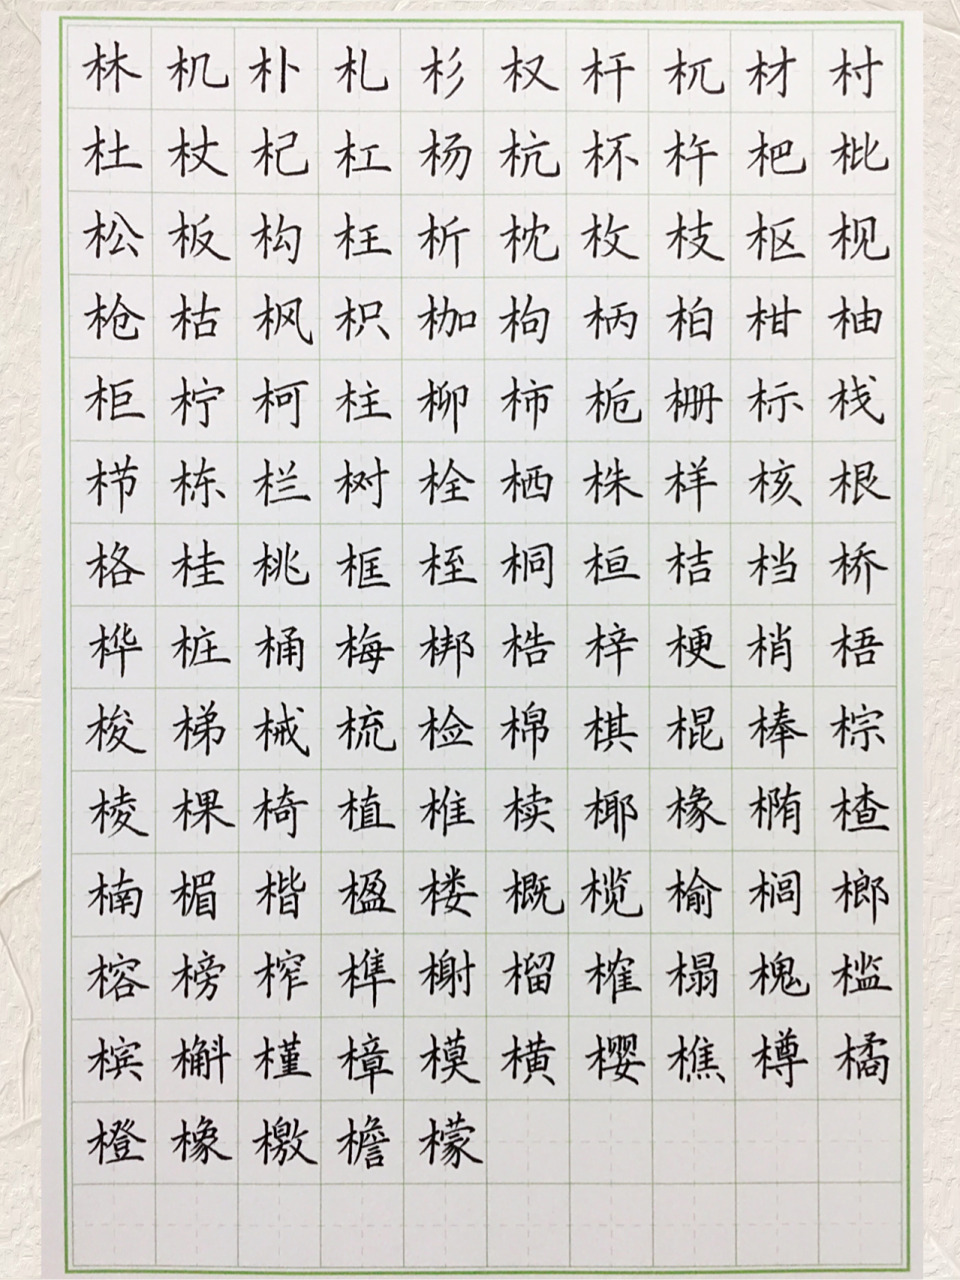 林机朴札杉权杆杌材村
杜杖杞杠杨杭杯杵杷枇
松板构枉析枕枚枝枢枧
枪枯枫枳枷枸柄柏柑柚
柜柠柯柱柳柿栀栅标栈
栉栋栏树栓栖株样核根
格桂桃框桎桐桓桔档桥
桦桩桶梅梆梏梓梗梢梧
梭梯械梳检棉棋棍棒棕
棱棵椅植椎椟椰椽椭楂
楠楣楷楹楼概榄榆榈榔
榕榜榨榫榭榴榷榻槐槛
槟槲槿樟模横樱樵樽橘
橙橡檄檐檬